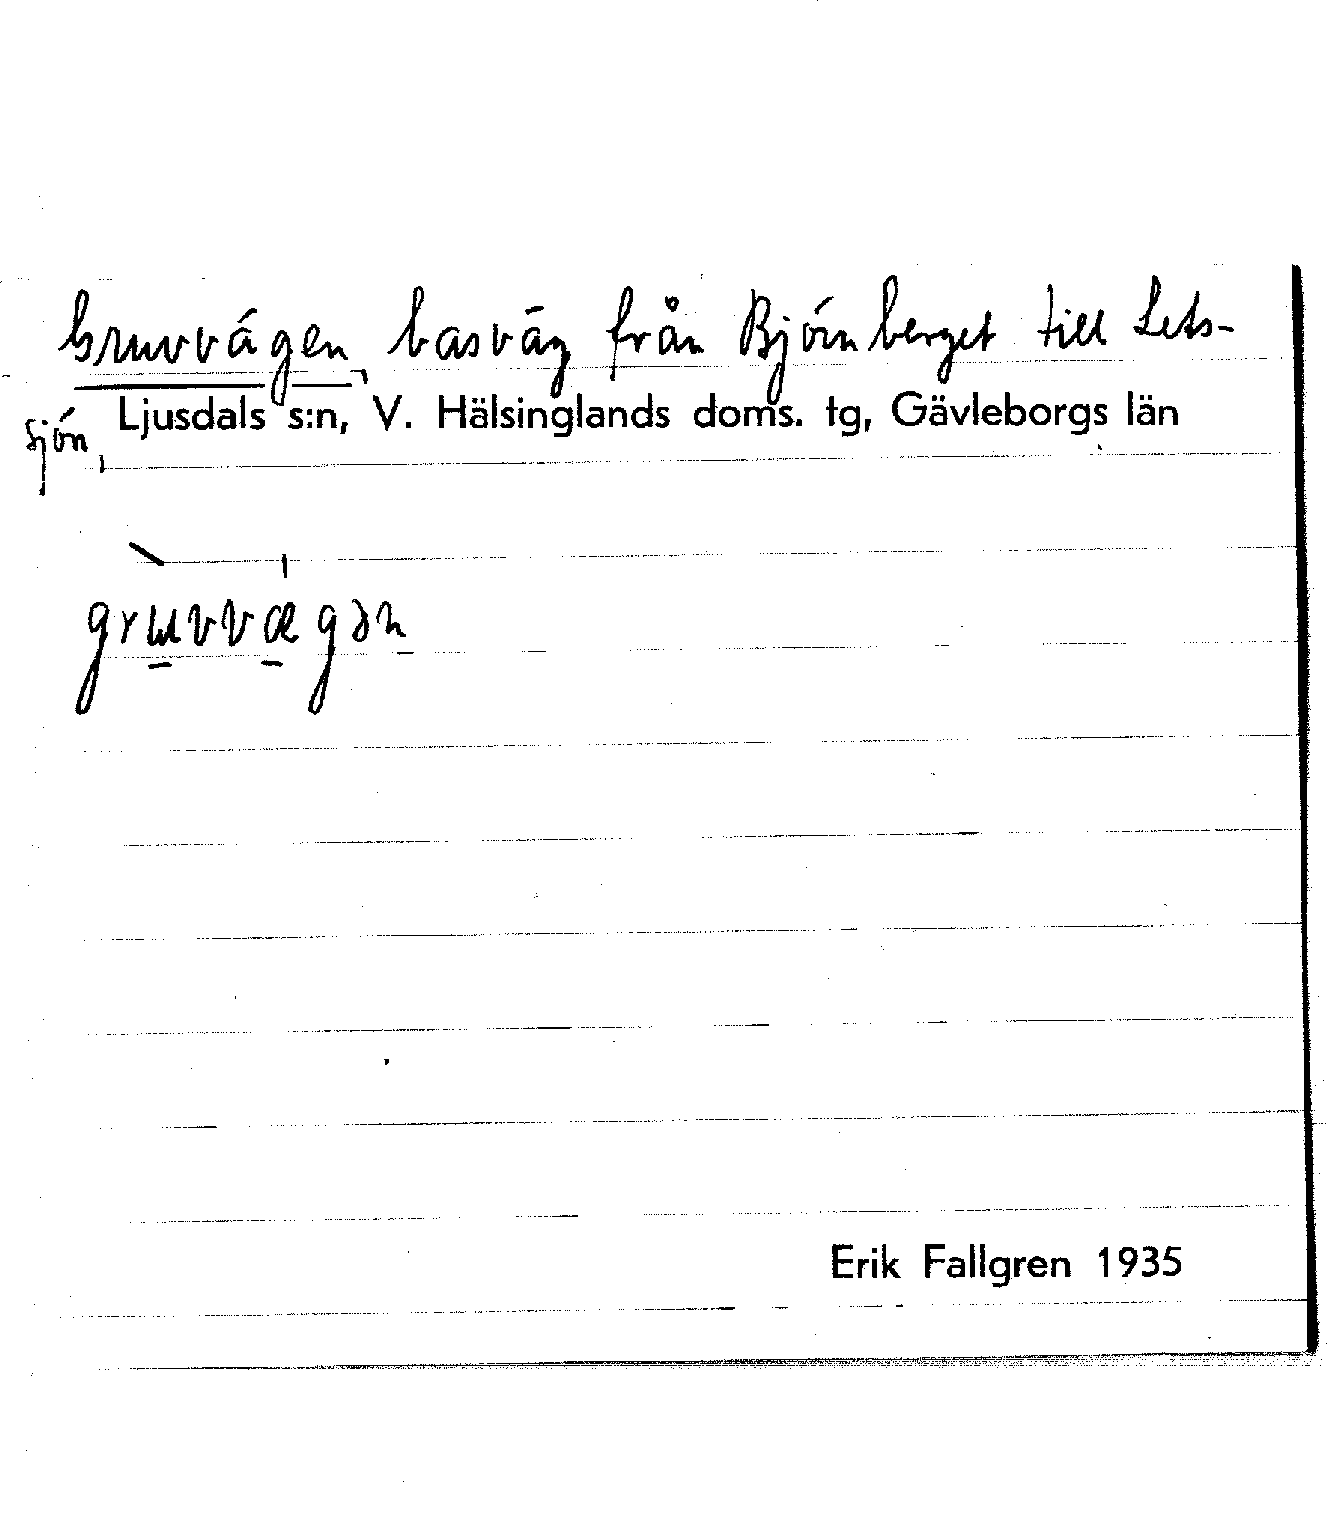 Gruvvägen, basväg från Björnberget till Lets-
Ljusdals s:n, V. Hälsinglands doms. tg, Gävleborgs län
sjön,
grɯvvægən
Erik Fallgren 1935